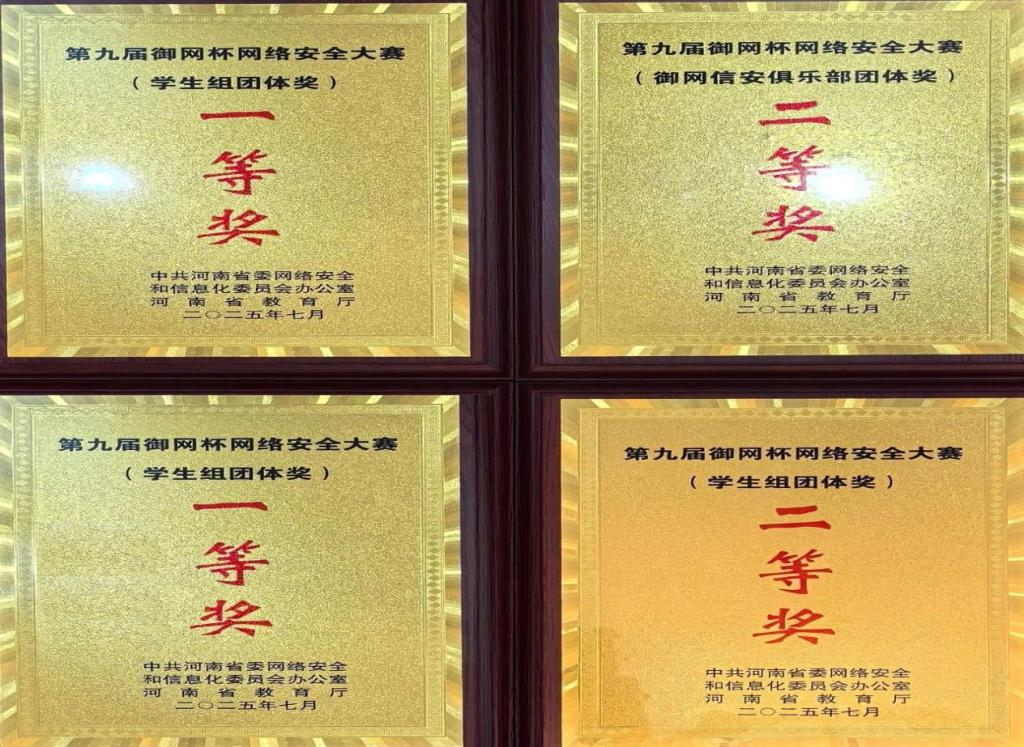 第九届御网杯网络安全大赛
（学生组团体奖）
一
等
奖
中共河南省委网络安全
和信息化委员会办公室
河南省教育厅
二〇二五年七月
第九届御网杯网络安全大赛
（御网信安俱乐部团体奖）
二
等
奖
中共河南省委网络安全
和信息化委员会办公室
河南省教育厅
二〇二五年七月
第九届御网杯网络安全大赛
（学生组团体奖）
一
等
奖
中共河南省委网络安全
和信息化委员会办公室
河南省教育厅
二〇二五年七月
第九届御网杯网络安全大赛
（学生组团体奖）
二
等
奖
中共河南省委网络安全
和信息化委员会办公室
河南省教育厅
二〇二五年七月